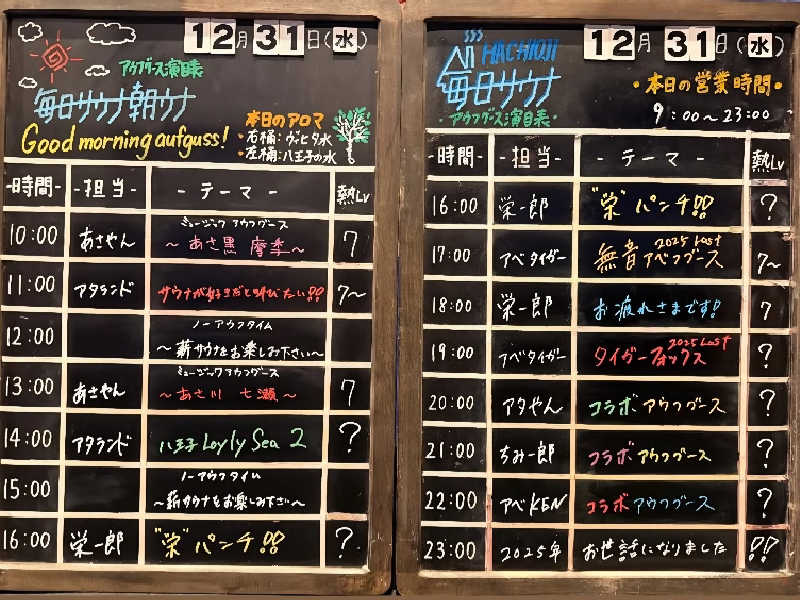 12月31日(水)
アウフグース演目表
毎日サウナ朝ウナ
Good morning aufguss!
本日のアロマ
・右桶:ヴィヒタ水
・左桶:八王子の水
-時間- -担当- -テーマ- 熱Lv
10:00 あさやん ミュージック アウフグース
~あさ黒 摩季~ 7
11:00 アタランド サウナが好きだと叫びたい!! 7~
12:00 ノーアウフタイム
~薪サウナをお楽しみ下さい~
13:00 あさやん ミュージックアウフグース
~あさ川 七瀬~ 7
14:00 アタランド 八王子Loyly Sea 2 ?
15:00 ノーアウフタイム
~薪サウナをお楽しみ下さい~
16:00 栄一郎 "栄"パンチ!! ?
12月31日(水)
HACHIOJI
毎日サウナ
・アウフグース演目表・
・本日の営業時間・
9:00~23:00
-時間- -担当- -テーマ- 熱Lv
16:00 栄一郎 "栄"パンチ!! ?
17:00 アベタイガー 2025 Last
無音アベフグース 7~
18:00 栄一郎 お疲れさまです! 7
19:00 アベタイガー 2025 Last
タイガーフォックス ?
20:00 アタやん コラボアウフグース ?
21:00 ちみ一郎 コラボアウフグース ?
22:00 アベKEN コラボアウフグース ?
23:00 2025年 お世話になりました !!